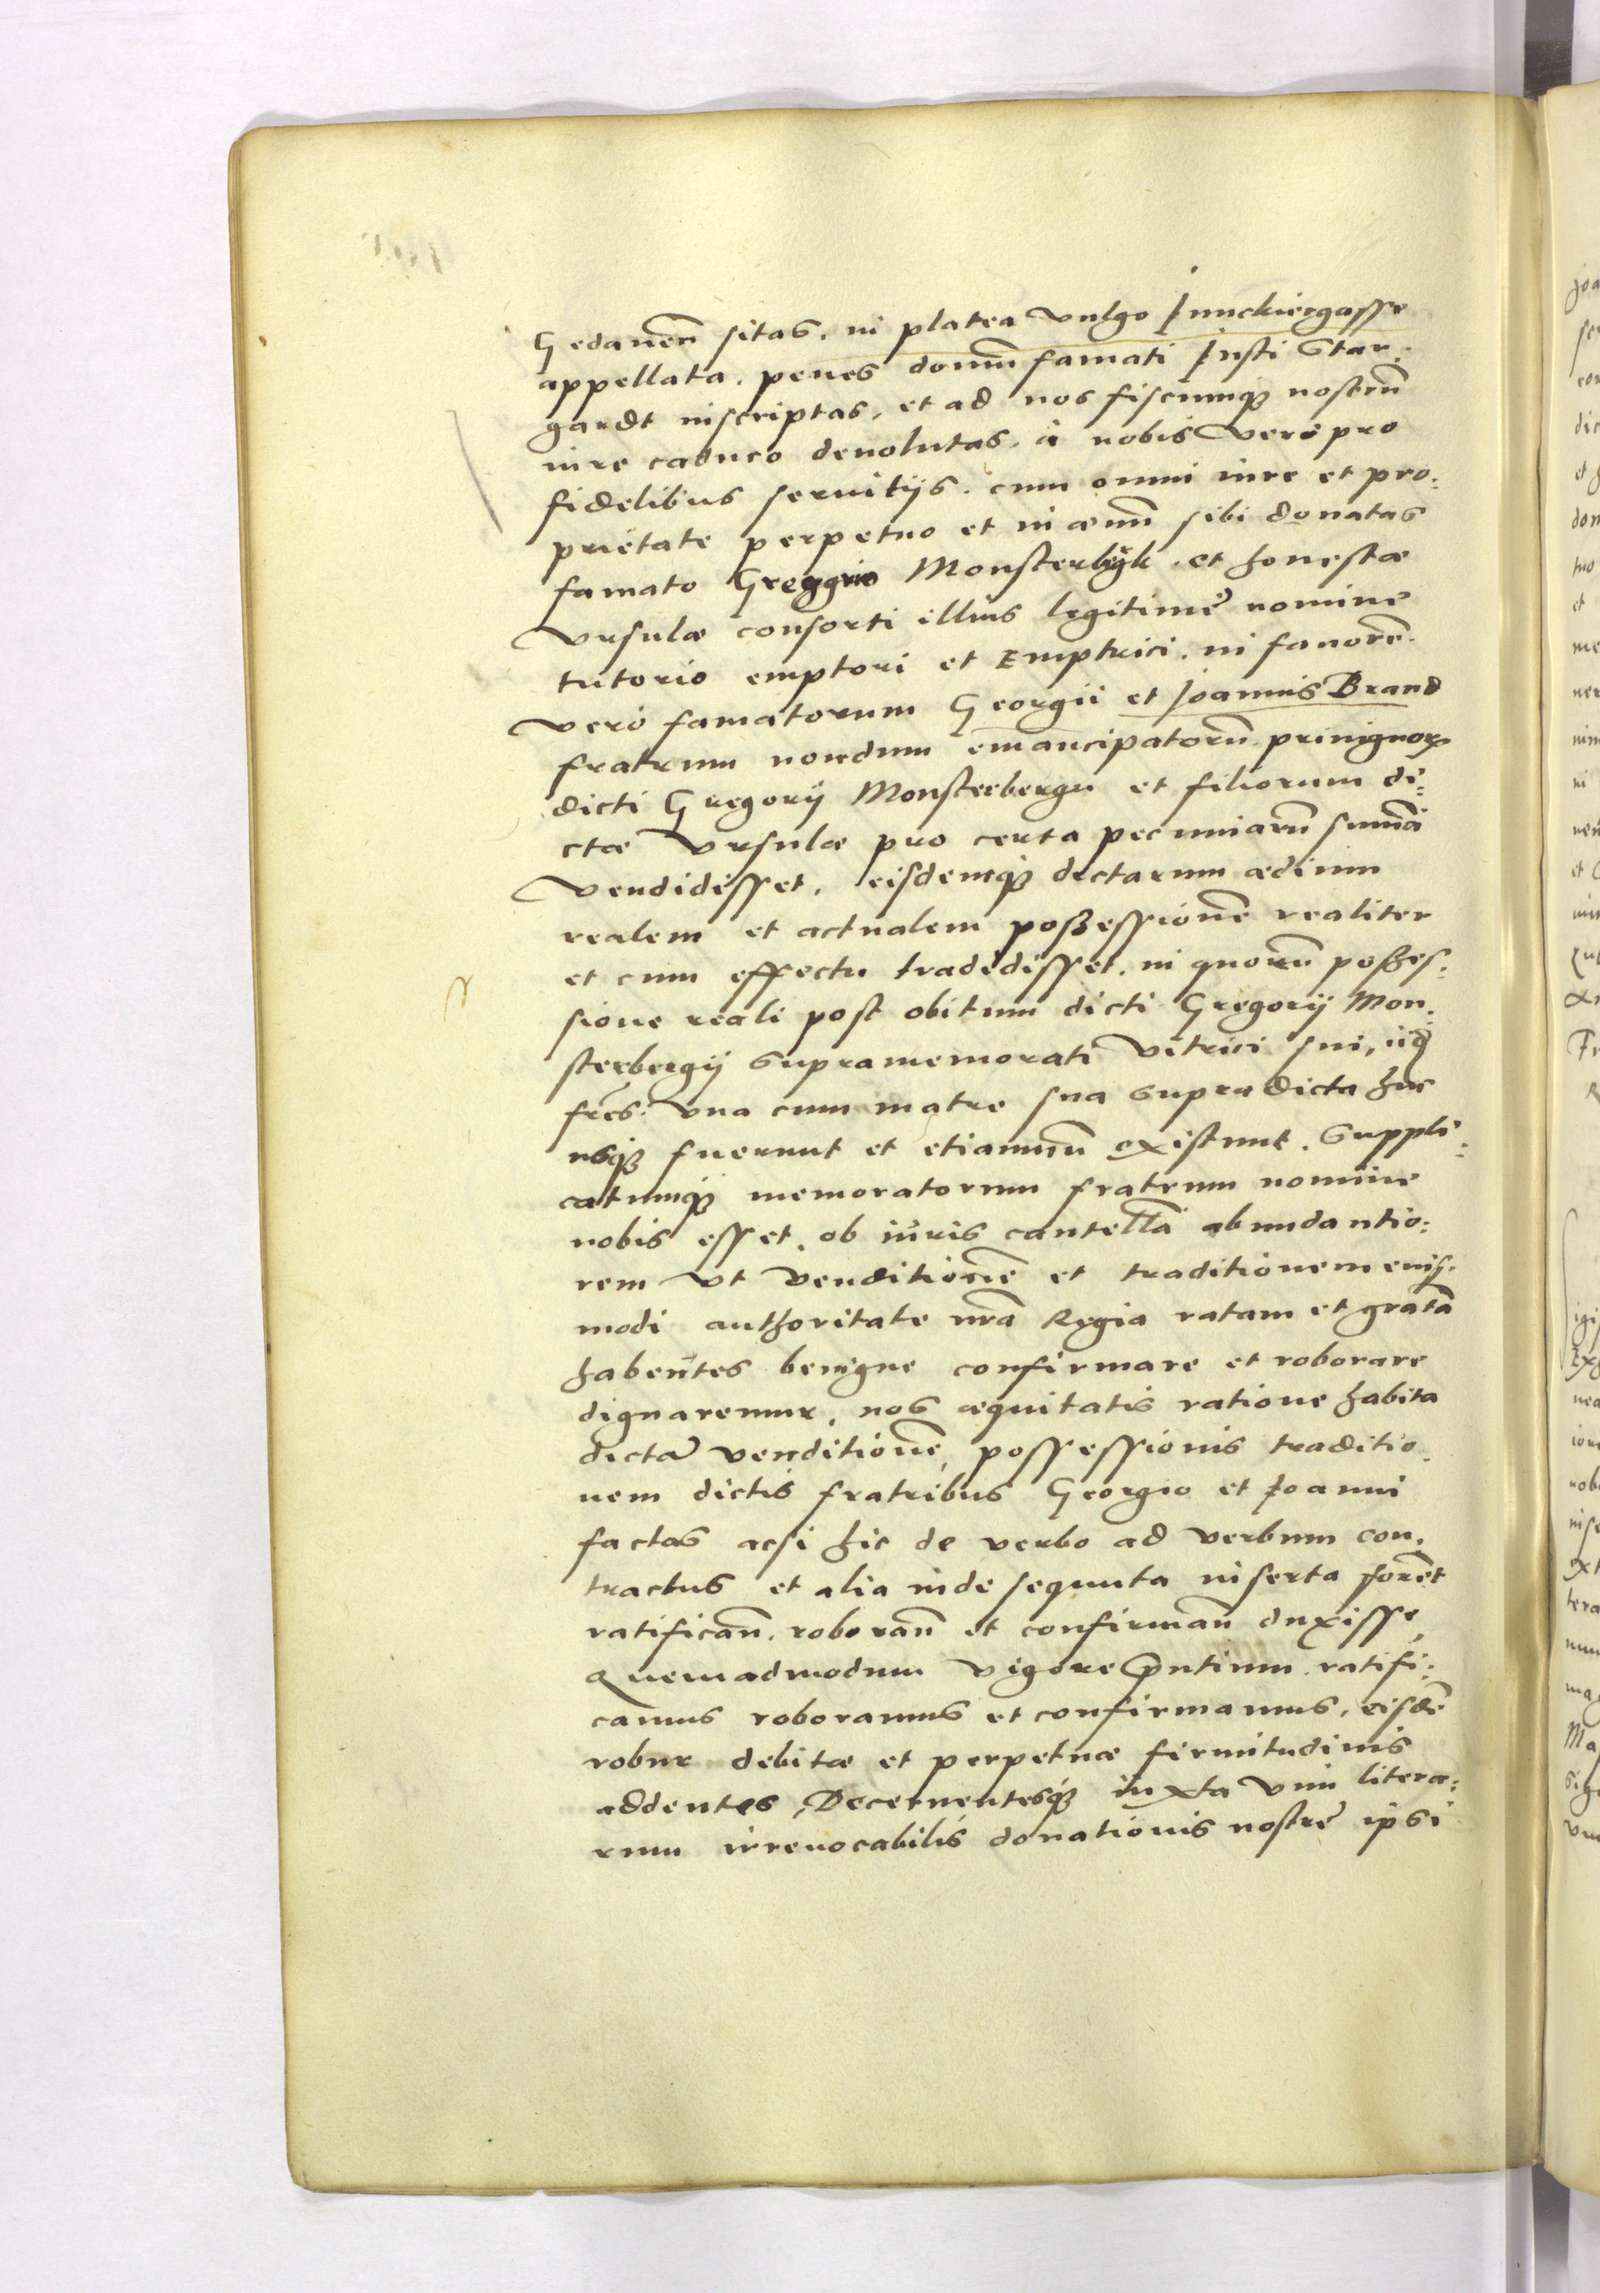 Gedaneñ sitas, in platea vulgo Junckiergasse
appellata, penes domũ famati Justi Star-
gardt inscriptas, et ad nos fiscumq nostrũ
iure caduco deuolutas, à nobis verò pro
fidelibus seruitijs, cum omni iure et pro:
prietate perpetuo et in æuũ sibi donatas
famato Gregorio Monsterbergk, et honestæ
Vrsulæ consorti illius legitimè nomine
tutorio emptori et Emptrici, in fauorẽ
verò famatorum Georgii et Joannis Brand
fratrum nondum emancipatorũ priuignorꝝ
dicti Gregorij Monsterbergii et filiorum di:
ctæ Vrsulæ pro certa pecuniarũ summã
vendidisset, eisdemq dictarum ædium
realem et actualem poßessionẽ realiter
et cum effectu tradidisset, in quorũ poßes:
sione reali post obitum dicti Gregorij Mon:
sterbergij supramemorati vitrici sui, iid
fres vna cum matre sua supradicta huc
usq fuerunt et etiamnũ existunt. Suppli:
catumq memoratorum fratrum nomine
nobis esset, ob iuris cautellã abundantio:
rem vt venditionẽ et traditionem euis:
modi authoritate nrã Regia ratam et gratã
habentes benigne confirmare et roborare
dignaremur, nos æquitatis ratione habita
dictã venditionẽ, possessionis traditio
nem dictis fratribus Georgio et Joanni
factas acsi hic de verbo ad verbum con:
tractus et alia inde sequuta inserta forẽt
ratificañ, roborañ et confirmañ duxisse,
Quemadmodum vigore pñtium ratifi:
camus roboramus et confirmamus, eisdẽ
robur debitæ et perpetuæ firmitudinis
addentes, Decernentesq iuxta vim litera:
rum irreuocabilis donationis nostrę ipsi